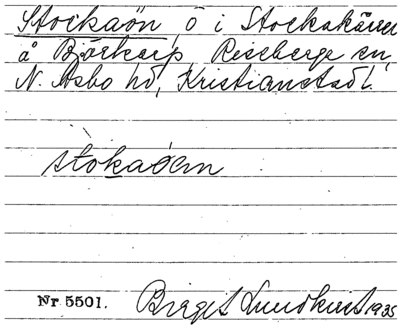 Stockaön, ö i Stockakärret
å Björkarp, Riseberga sn,
N. Åsbo hd, Kristianstad l.
stokaöen
Nr 5501. Birgit Lundkvist 1935